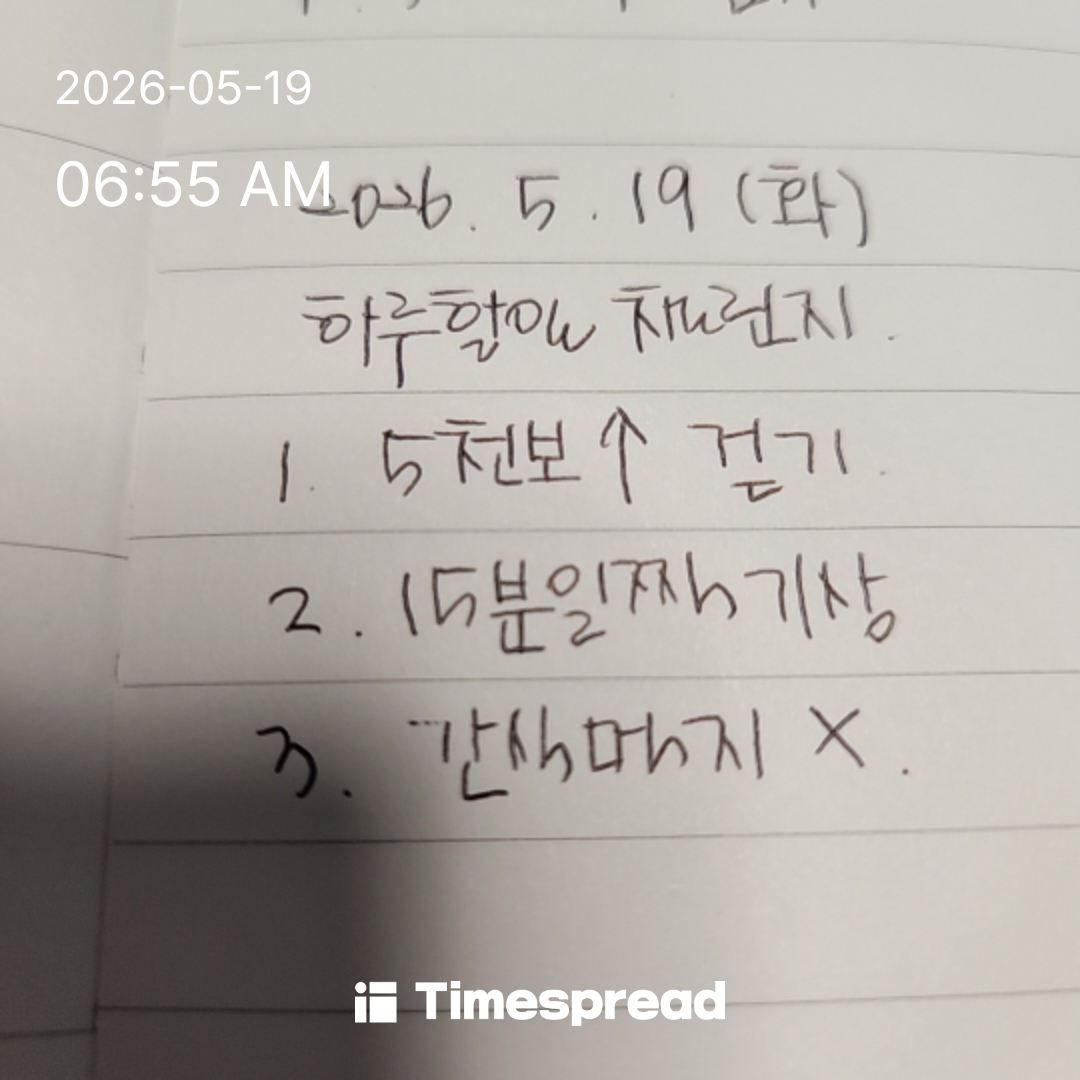 2026-05-19
06:55 AM
2026. 5. 19 (화)
하루할일 챌린지.
1. 5천보↑ 걷기.
2. 15분일찍 기상
3. 간식먹지 X.
Timespread